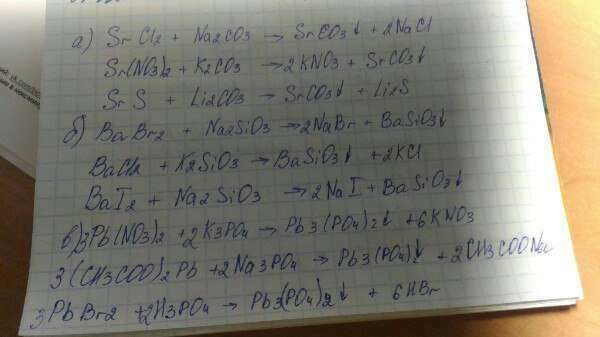 а) SrCl2 + Na2CO3 → SrCO3↓ + 2NaCl
Sr(NO3)2 + K2CO3 → 2KNO3 + SrCO3↓
SrS + Li2CO3 → SrCO3↓ + Li2S
б) BaBr2 + Na2SiO3 → 2NaBr + BaSiO3↓
BaCl2 + K2SiO3 → BaSiO3↓ + 2KCl
BaI2 + Na2SiO3 → 2NaI + BaSiO3↓
в) 3Pb(NO3)2 + 2K3PO4 → Pb3(PO4)2↓ + 6KNO3
3(CH3COO)2Pb + 2Na3PO4 → Pb3(PO4)↓ + 2CH3COONa
3PbBr2 + 2H3PO4 → Pb3(PO4)2↓ + 6HBr